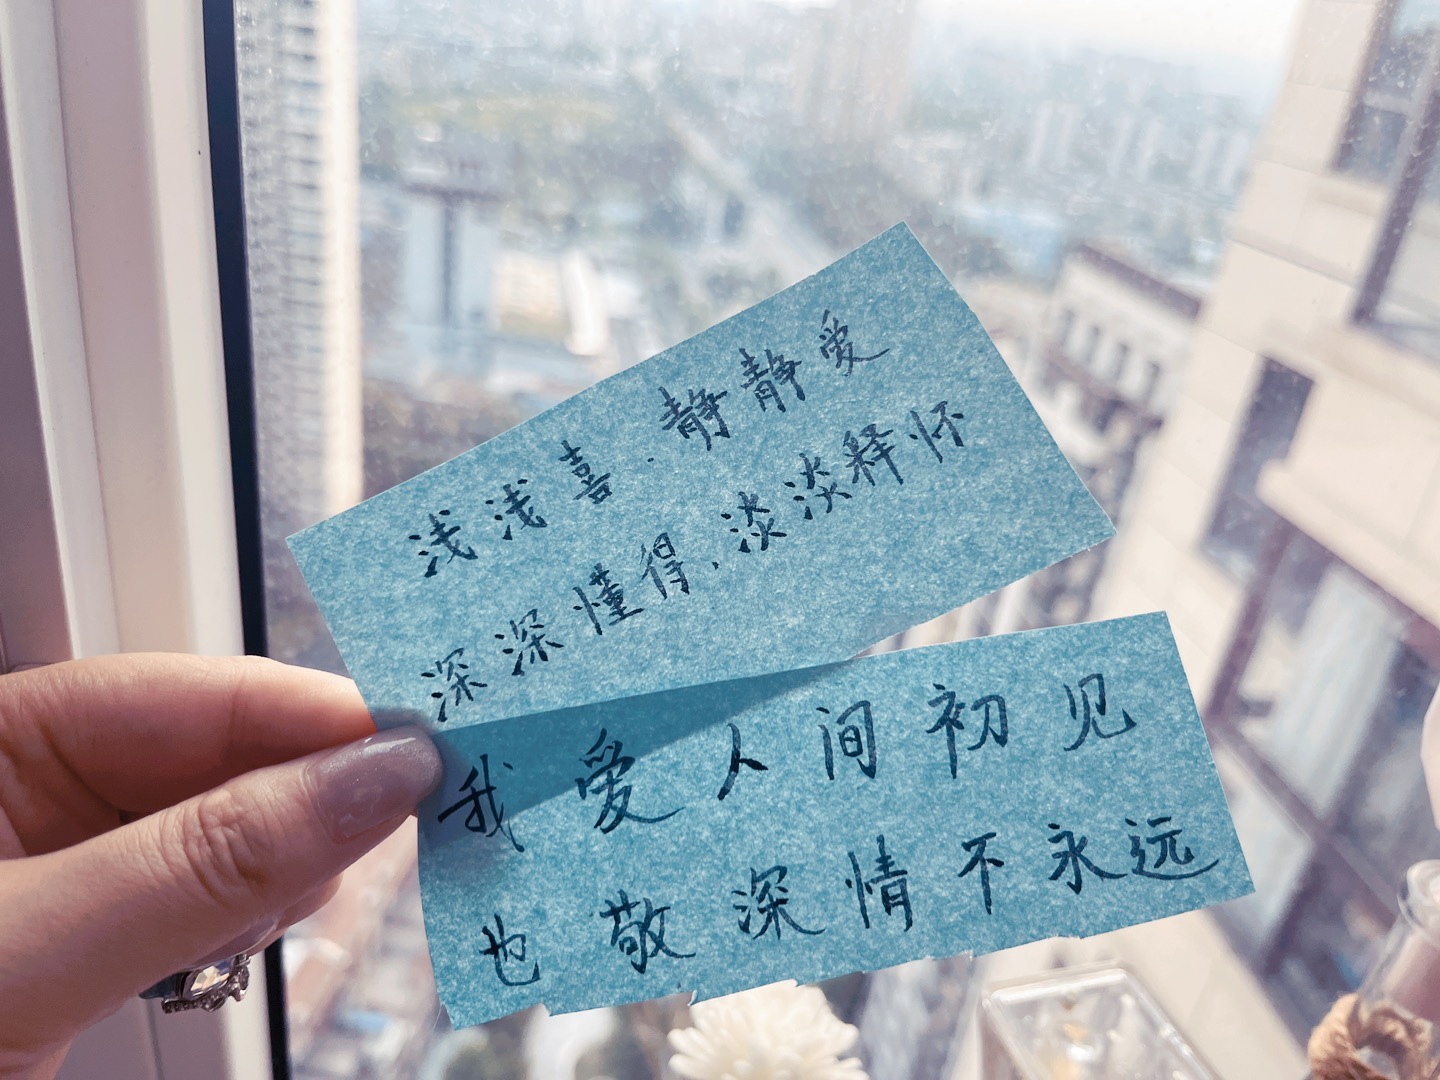 浅浅喜.静静爱
深深懂得.淡淡释怀
我爱人间初见
也敬深情不永远